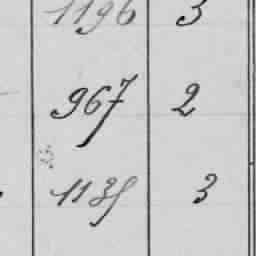 1196 3
967 2
1135 3